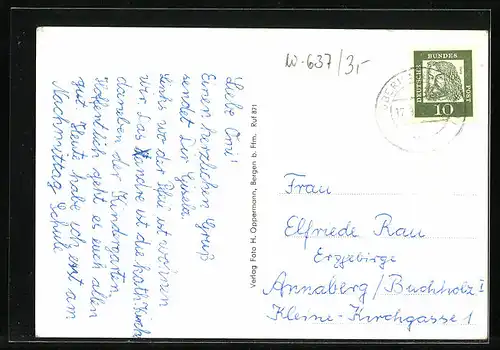 W-637/3,-
Liebe Omi!
Einen herzlichen Gruß
sendet Dir Gisela.
Links wo der Pfeil ist wohnen
wir. Das andre ist die kath. Kirche
daneben der Kindergarten
Hoffentlich geht es euch allen
gut. Heute habe ich erst am
Nachmittag Schule
Verlag Foto H. Oppermann, Bergen b. Ffm. Ruf 871
DEUTSCHE BUNDESPOST
10
Frau
Elfriede Rau
Erzgebirge
Annaberg/Buchholz I
Kleine-Kirchgasse 1